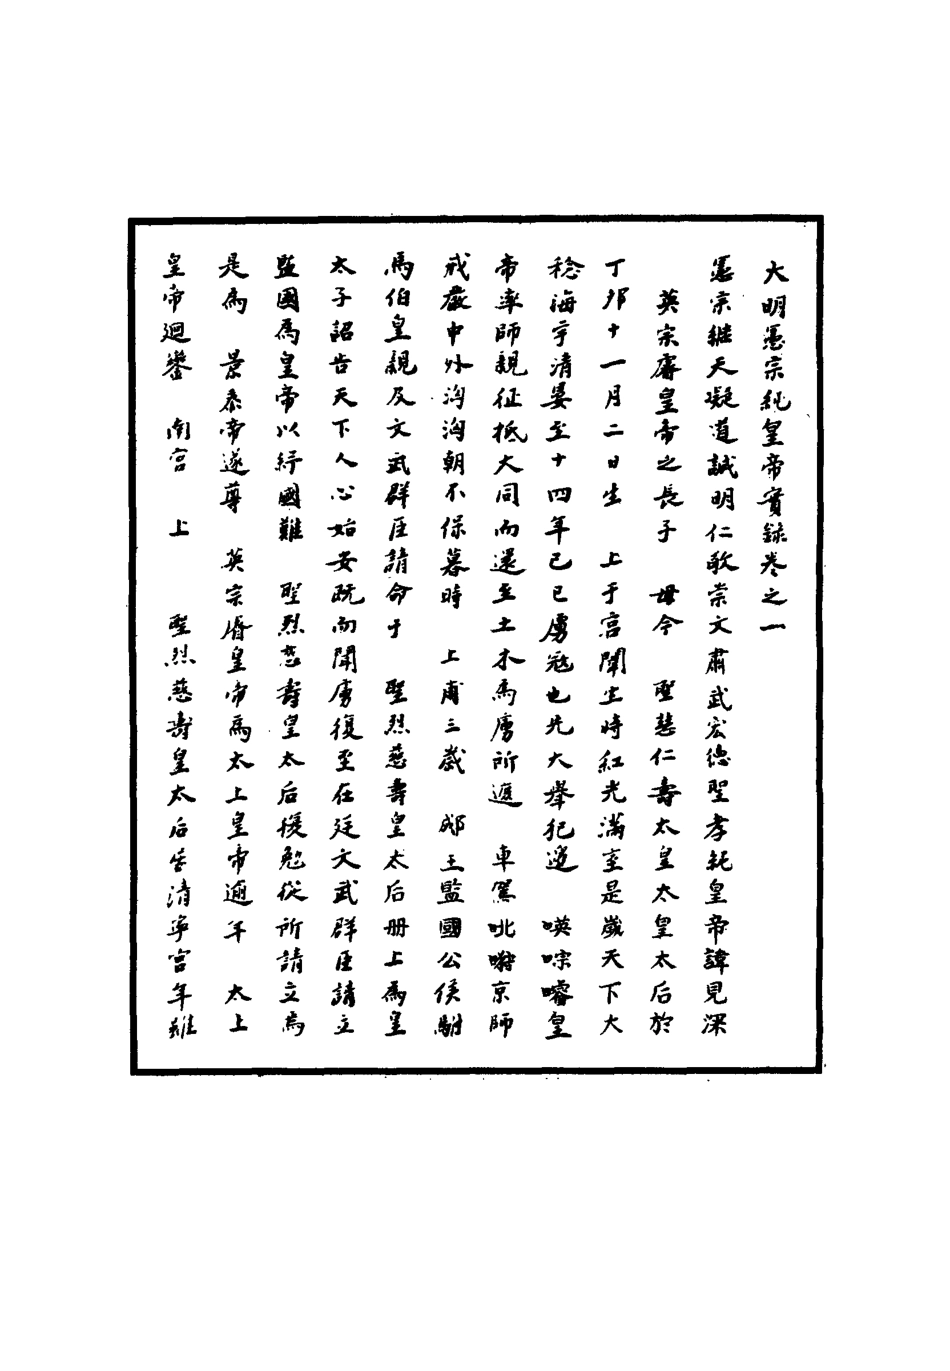 大明憲宗純皇帝實錄卷之一
憲宗繼天凝道誠明仁敬崇文肅武宏德聖孝純皇帝諱見深
英宗睿皇帝之長子　母今　聖慈仁壽太皇太皇太后於
丁卯十一月二日生　上于宮闈生時紅光滿室是歲天下大
稔海宇清晏至十四年己巳虜寇也先大舉犯邊　㗲㗅㘈皇
帝率師親征抵大同而還至土木為虜所遮　車駕吪㘚京師
戒嚴中外洶洶朝不保暮時　上甫三歲　郕王監國公侯駙
馬伯皇親及文武群臣請命于　聖烈慈壽皇太后册上為皇
太子詔告天下人心始安既而聞虜復至在廷文武群臣請立
監國為皇帝以紓國難　聖烈慈壽皇太后復勉從所請立為
是為　景泰帝遂尊　英宗睿皇帝為太上皇帝逾年　太上
皇帝迴鑾　南宮　上　聖烈慈壽皇太后居清寧宮年雖